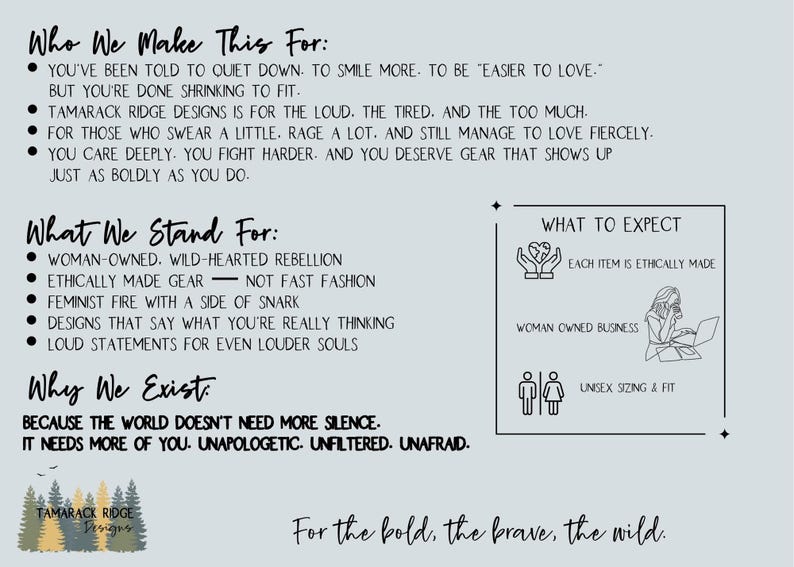 Who We Make This For:
• YOU'VE BEEN TOLD TO QUIET DOWN. TO SMILE MORE. TO BE "EASIER TO LOVE."
BUT YOU'RE DONE SHRINKING TO FIT.
• TAMARACK RIDGE DESIGNS IS FOR THE LOUD, THE TIRED, AND THE TOO MUCH.
• FOR THOSE WHO SWEAR A LITTLE, RAGE A LOT, AND STILL MANAGE TO LOVE FIERCELY.
• YOU CARE DEEPLY. YOU FIGHT HARDER. AND YOU DESERVE GEAR THAT SHOWS UP
JUST AS BOLDLY AS YOU DO.
What We Stand For:
• WOMAN-OWNED, WILD-HEARTED REBELLION
• ETHICALLY MADE GEAR — NOT FAST FASHION
• FEMINIST FIRE WITH A SIDE OF SNARK
• DESIGNS THAT SAY WHAT YOU'RE REALLY THINKING
• LOUD STATEMENTS FOR EVEN LOUDER SOULS
WHAT TO EXPECT
EACH ITEM IS ETHICALLY MADE
WOMAN OWNED BUSINESS
UNISEX SIZING & FIT
Why We Exist:
BECAUSE THE WORLD DOESN'T NEED MORE SILENCE.
IT NEEDS MORE OF YOU. UNAPOLOGETIC. UNFILTERED. UNAFRAID.
TAMARACK RIDGE
Designs
For the bold, the brave, the wild.